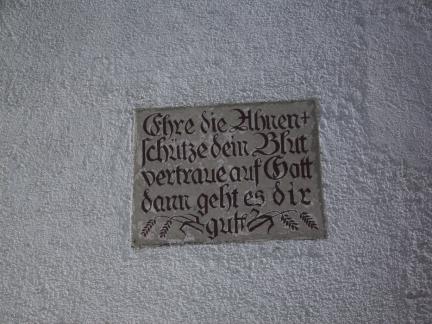 Ehre die Ahnen +
schütze dein Blut
vertraue auf Gott
dann geht es dir
gut